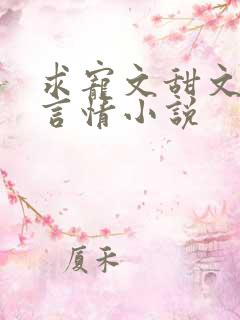 求寵文甜文
言情小説
厦禾